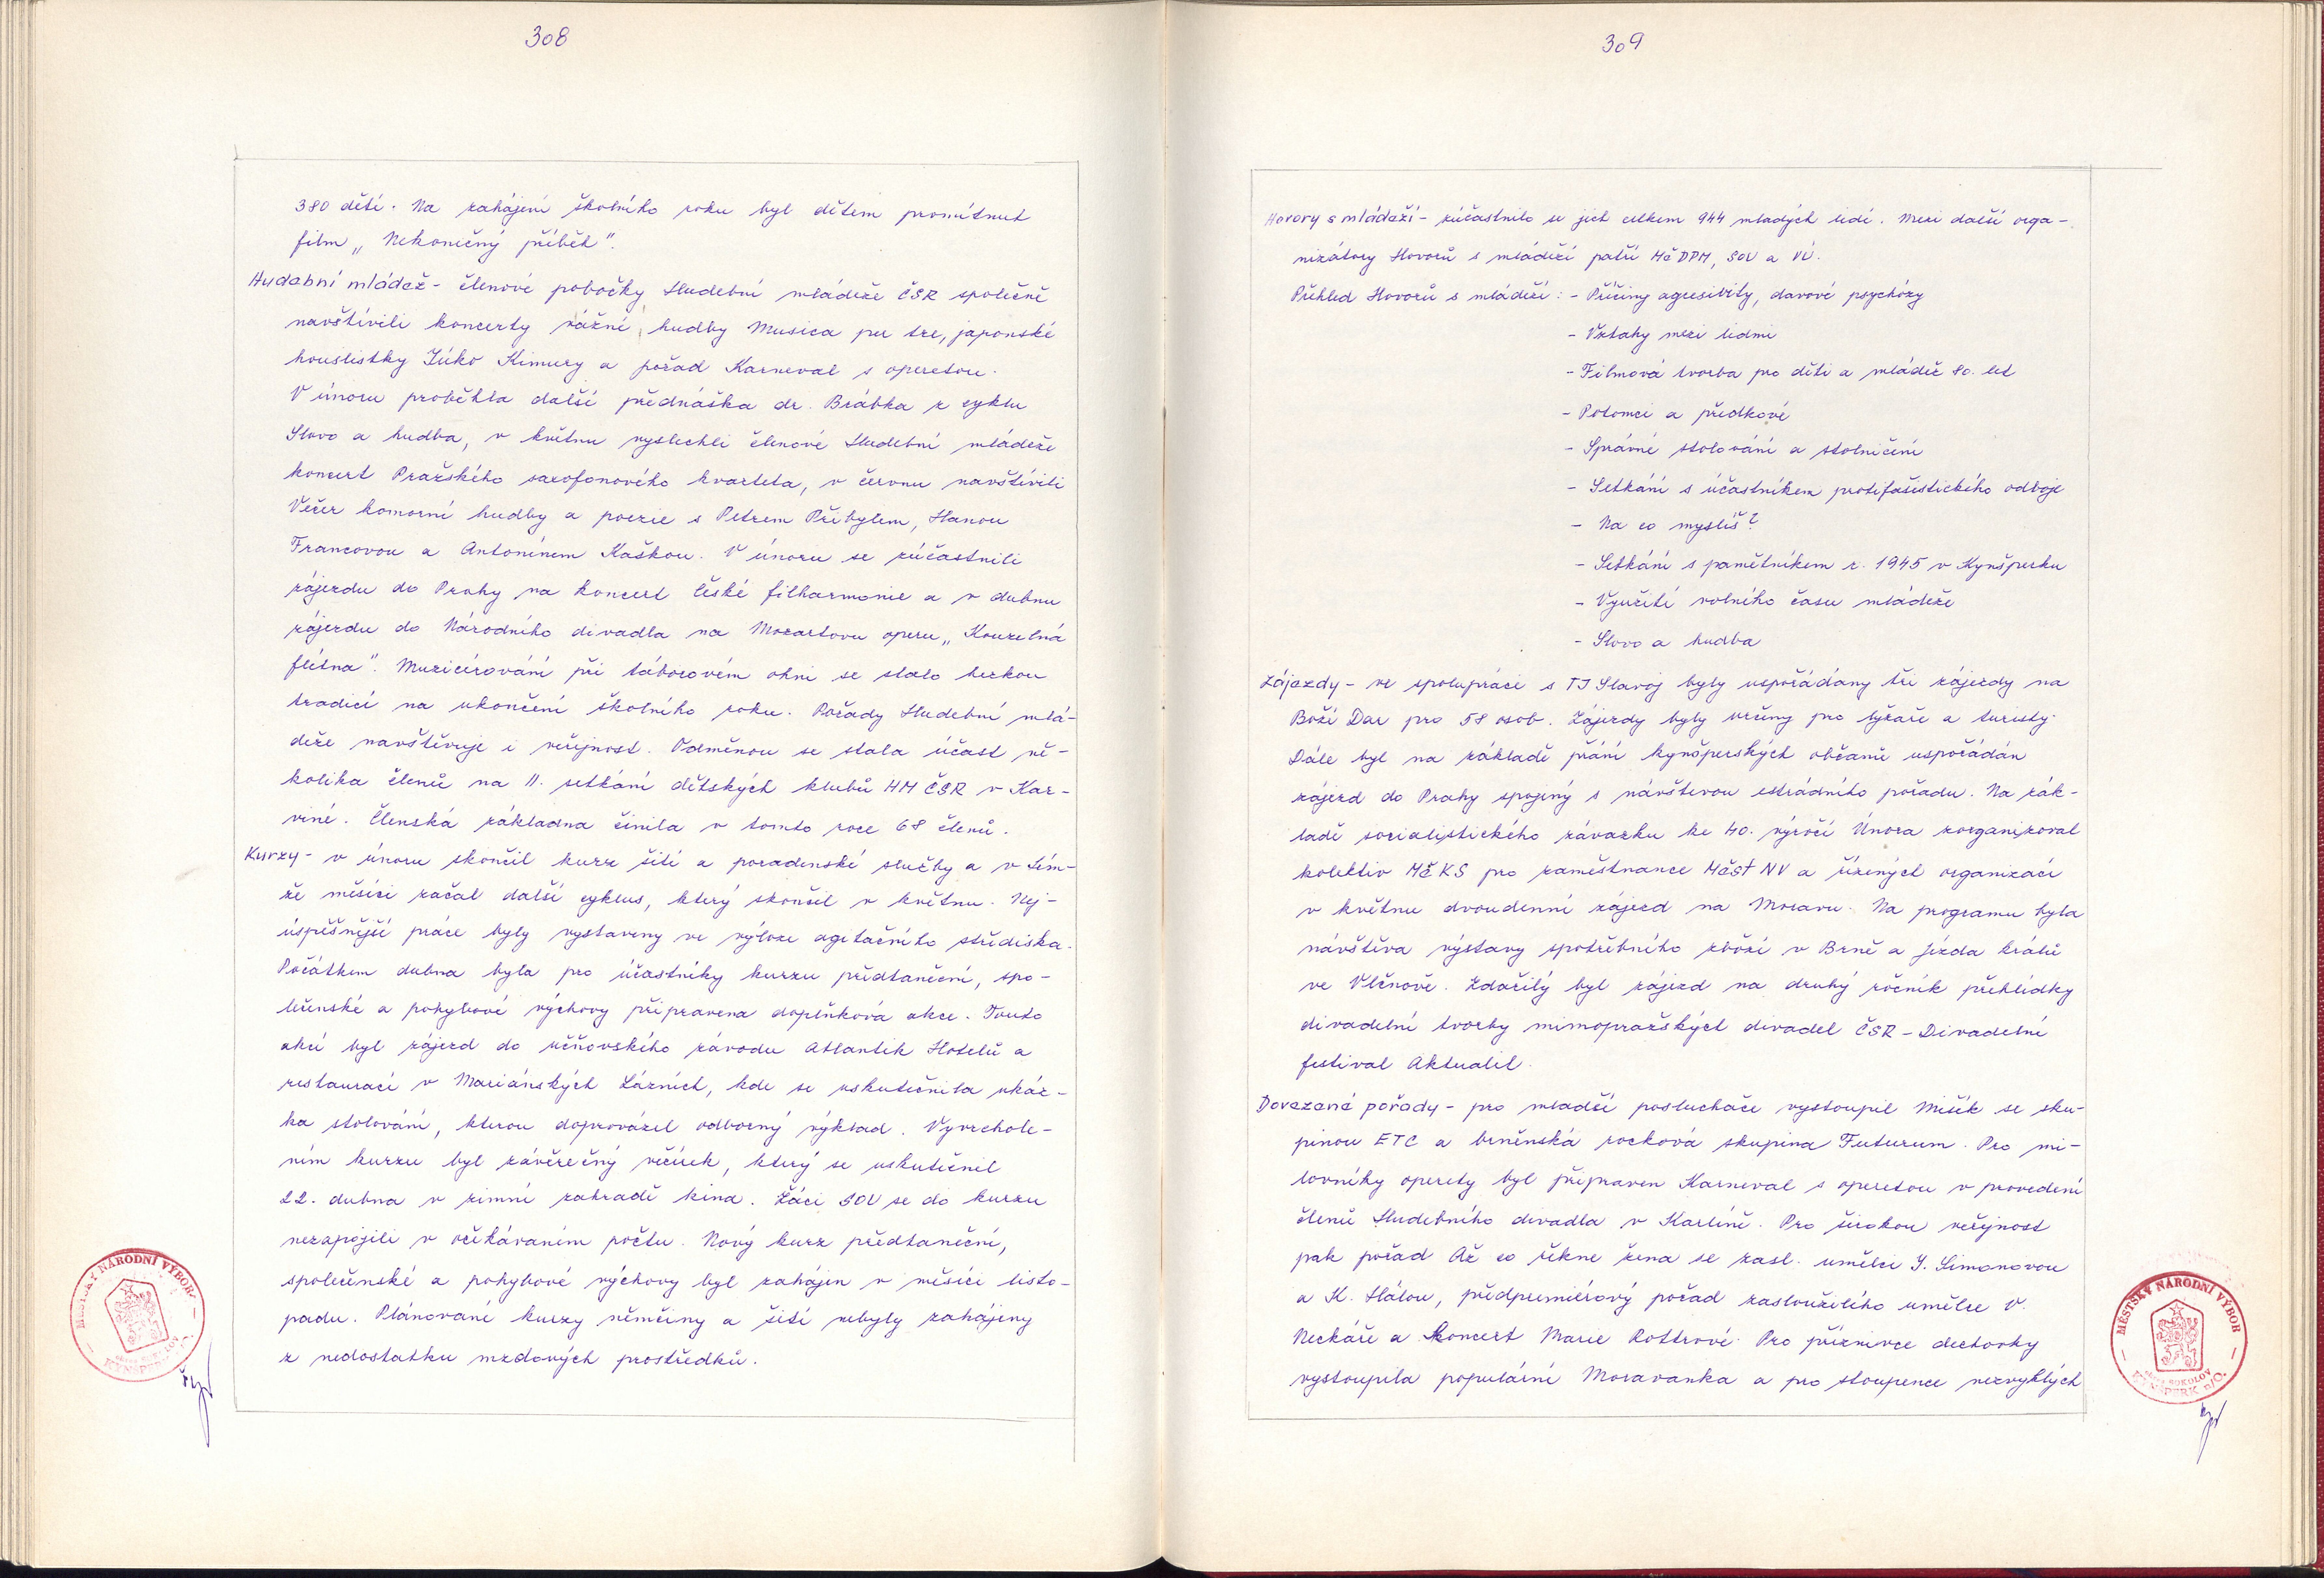 308
380 dětí. Na zahájení školního roku byl dětem promítnut
film „Nekonečný příběh".
Hudební mládež - členové pobočky Hudební mládeže ČSR společně
navštívili koncerty vážné hudby Musica per tre, japonské
houslistky Júko Kimury a pořad Karneval s operetou.
V únoru proběhla další přednáška dr. Brábka z cyklu
Slovo a hudba, v květnu vyslechli členové Hudební mládeže
koncert Pražského saxofonového kvarteta, v červnu navštívili
Večer komorní hudby a poezie s Petrem Přibylem, Hanou
Francovou a Antonínem Kaškou. V únoru se zúčastnili
zájezdu do Prahy na koncert České filharmonie a v dubnu
zájezdu do Národního divadla na Mozartovu operu „Kouzelná
flétna". Muzicírování při táborovém ohni se stalo hezkou
tradicí na ukončení školního roku. Pořady Hudební mlá-
deže navštěvuje i veřejnost. Odměnou se stala účast ně-
kolika členů na 11. setkání dětských klubů HM ČSR v Kar-
viné. Členská základna činila v tomto roce 68 členů.
Kurzy - v únoru skončil kurz šití a poradenské služby a v tém-
že měsíci začal další cyklus, který skončil v květnu. Nej-
úspěšnější práce byly vystaveny ve výloze agitačního střediska.
Počátkem dubna byla pro účastníky kurzu předtaneční, spo-
lečenské a pohybové výchovy připravena doplňková akce. Touto
akcí byl zájezd do učňovského závodu Atlantik Hotelů a
restaurací v Mariánských Lázních, kde se uskutečnila ukáz-
ka stolování, kterou doprovázel odborný výklad. Vyvrchole-
ním kurzu byl závěrečný večírek, který se uskutečnil
22. dubna v zimní zahradě kina. Žáci SOU se do kurzu
nezapojili v očekávaném počtu. Nový kurz předtaneční,
společenské a pohybové výchovy byl zahájen v měsíci listo-
padu. Plánované kurzy němčiny a šití nebyly zahájeny
z nedostatku mzdových prostředků.
MĚSTSKÝ NÁRODNÍ VÝBOR
309
Hovory s mládeží - zúčastnilo se jich celkem 944 mladých lidí. Mezi další orga-
nizátory Hovorů s mládeží patří MěDPM, SOU a VÚ.
Přehled Hovorů s mládeží: - Příčiny agresivity, davové psychózy
- Vztahy mezi lidmi
- Filmová tvorba pro děti a mládež 80. let
- Potomci a předkové
- Správné stolování a stolničení
- Setkání s účastníkem protifašistického odboje
- Na co myslíš?
- Setkání s pamětníkem r. 1945 v Kynšperku
- Využití volného času mládeže
- Slovo a hudba
Zájezdy - ve spolupráci s TJ Slavoj byly uspořádány tři zájezdy na
Boží Dar pro 58 osob. Zájezdy byly určeny pro lyžaře a turisty.
Dále byl na základě přání kynšperských občanů uspořádán
zájezd do Prahy spojený s návštěvou estrádního pořadu. Na zák-
ladě socialistického závazku ke 40. výročí Února zorganizoval
kolektiv MěKS pro zaměstnance MěstNV a řízených organizací
v květnu dvoudenní zájezd na Moravu. Na programu byla
návštěva výstavy spotřebního zboží v Brně a Jízda králů
ve Vlčnově. Zdařilý byl zájezd na druhý ročník přehlídky
divadelní tvorby mimopražských divadel ČSR - Divadelní
festival Aktualil.
Dovezené pořady - pro mladší posluchače vystoupil Mišík se sku-
pinou ETC a brněnská rocková skupina Futurum. Pro mi-
lovníky operety byl připraven Karneval s operetou v provedení
členů Hudebního divadla v Karlíně. Pro širokou veřejnost
pak pořad Až co řekne žena se zasl. umělci Y. Simonovou
a K. Hálou, předpremiérový pořad zasloužilého umělce V.
Neckáře a koncert Marie Rottrové. Pro příznivce dechovky
vystoupila populární Moravanka a pro stoupence nezvyklých
MĚSTSKÝ NÁRODNÍ VÝBOR
okres SOKOLOV
KYNŠPERK n/O.